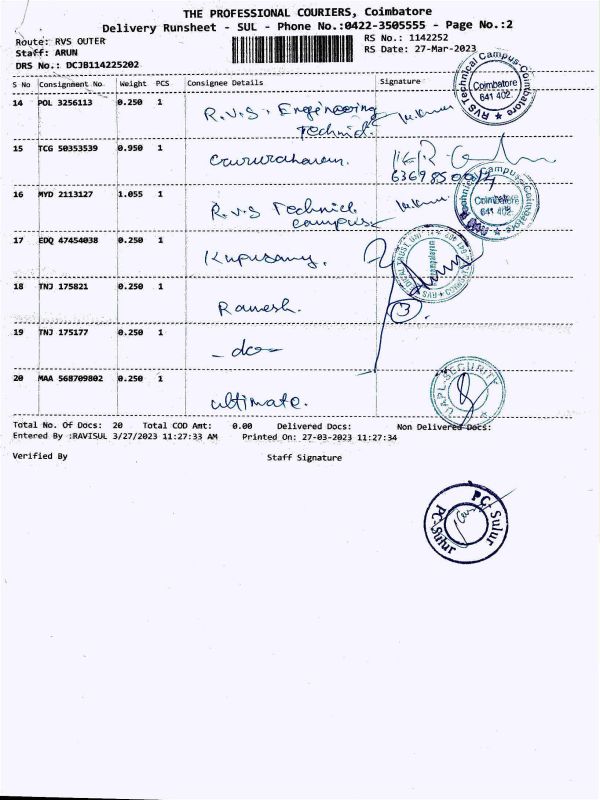 THE PROFESSIONAL COURIERS, Coimbatore
Delivery Runsheet - SUL - Phone No.:0422-3505555 - Page No.:2
Route: RVS OUTER
RS No.: 1142252
Staff: ARUN
RS Date: 27-Mar-2023
DRS No.: DCJB114225202
S No Consignment No Weight PCS Consignee Details Signature
14 POL 3256113 0.250 1 R.V.S. Engineering
Technic
RVS Technical Campus-Coimbatore
Coimbatore
641 402.
15 TCG 50353539 0.950 1
16 MYD 2113127 1.055 1 R.V.S Technical
campus
Technical Campus-Coimbatore
Coimbatore
641 402.
17 EDQ 47454038 0.250 1 Kupusamy.
18 TNJ 175821 0.250 1 Ramesh.
3
19 TNJ 175177 0.250 1 -do-
20 MAA 568709802 0.250 1 ultimate.
UAPL-SECURITY
Total No. Of Docs: 20 Total COD Amt: 0.00 Delivered Docs: Non Delivered Docs:
Entered By :RAVISUL 3/27/2023 11:27:33 AM Printed On: 27-03-2023 11:27:34
Verified By Staff Signature
PC-Sulur
PC-Sulur